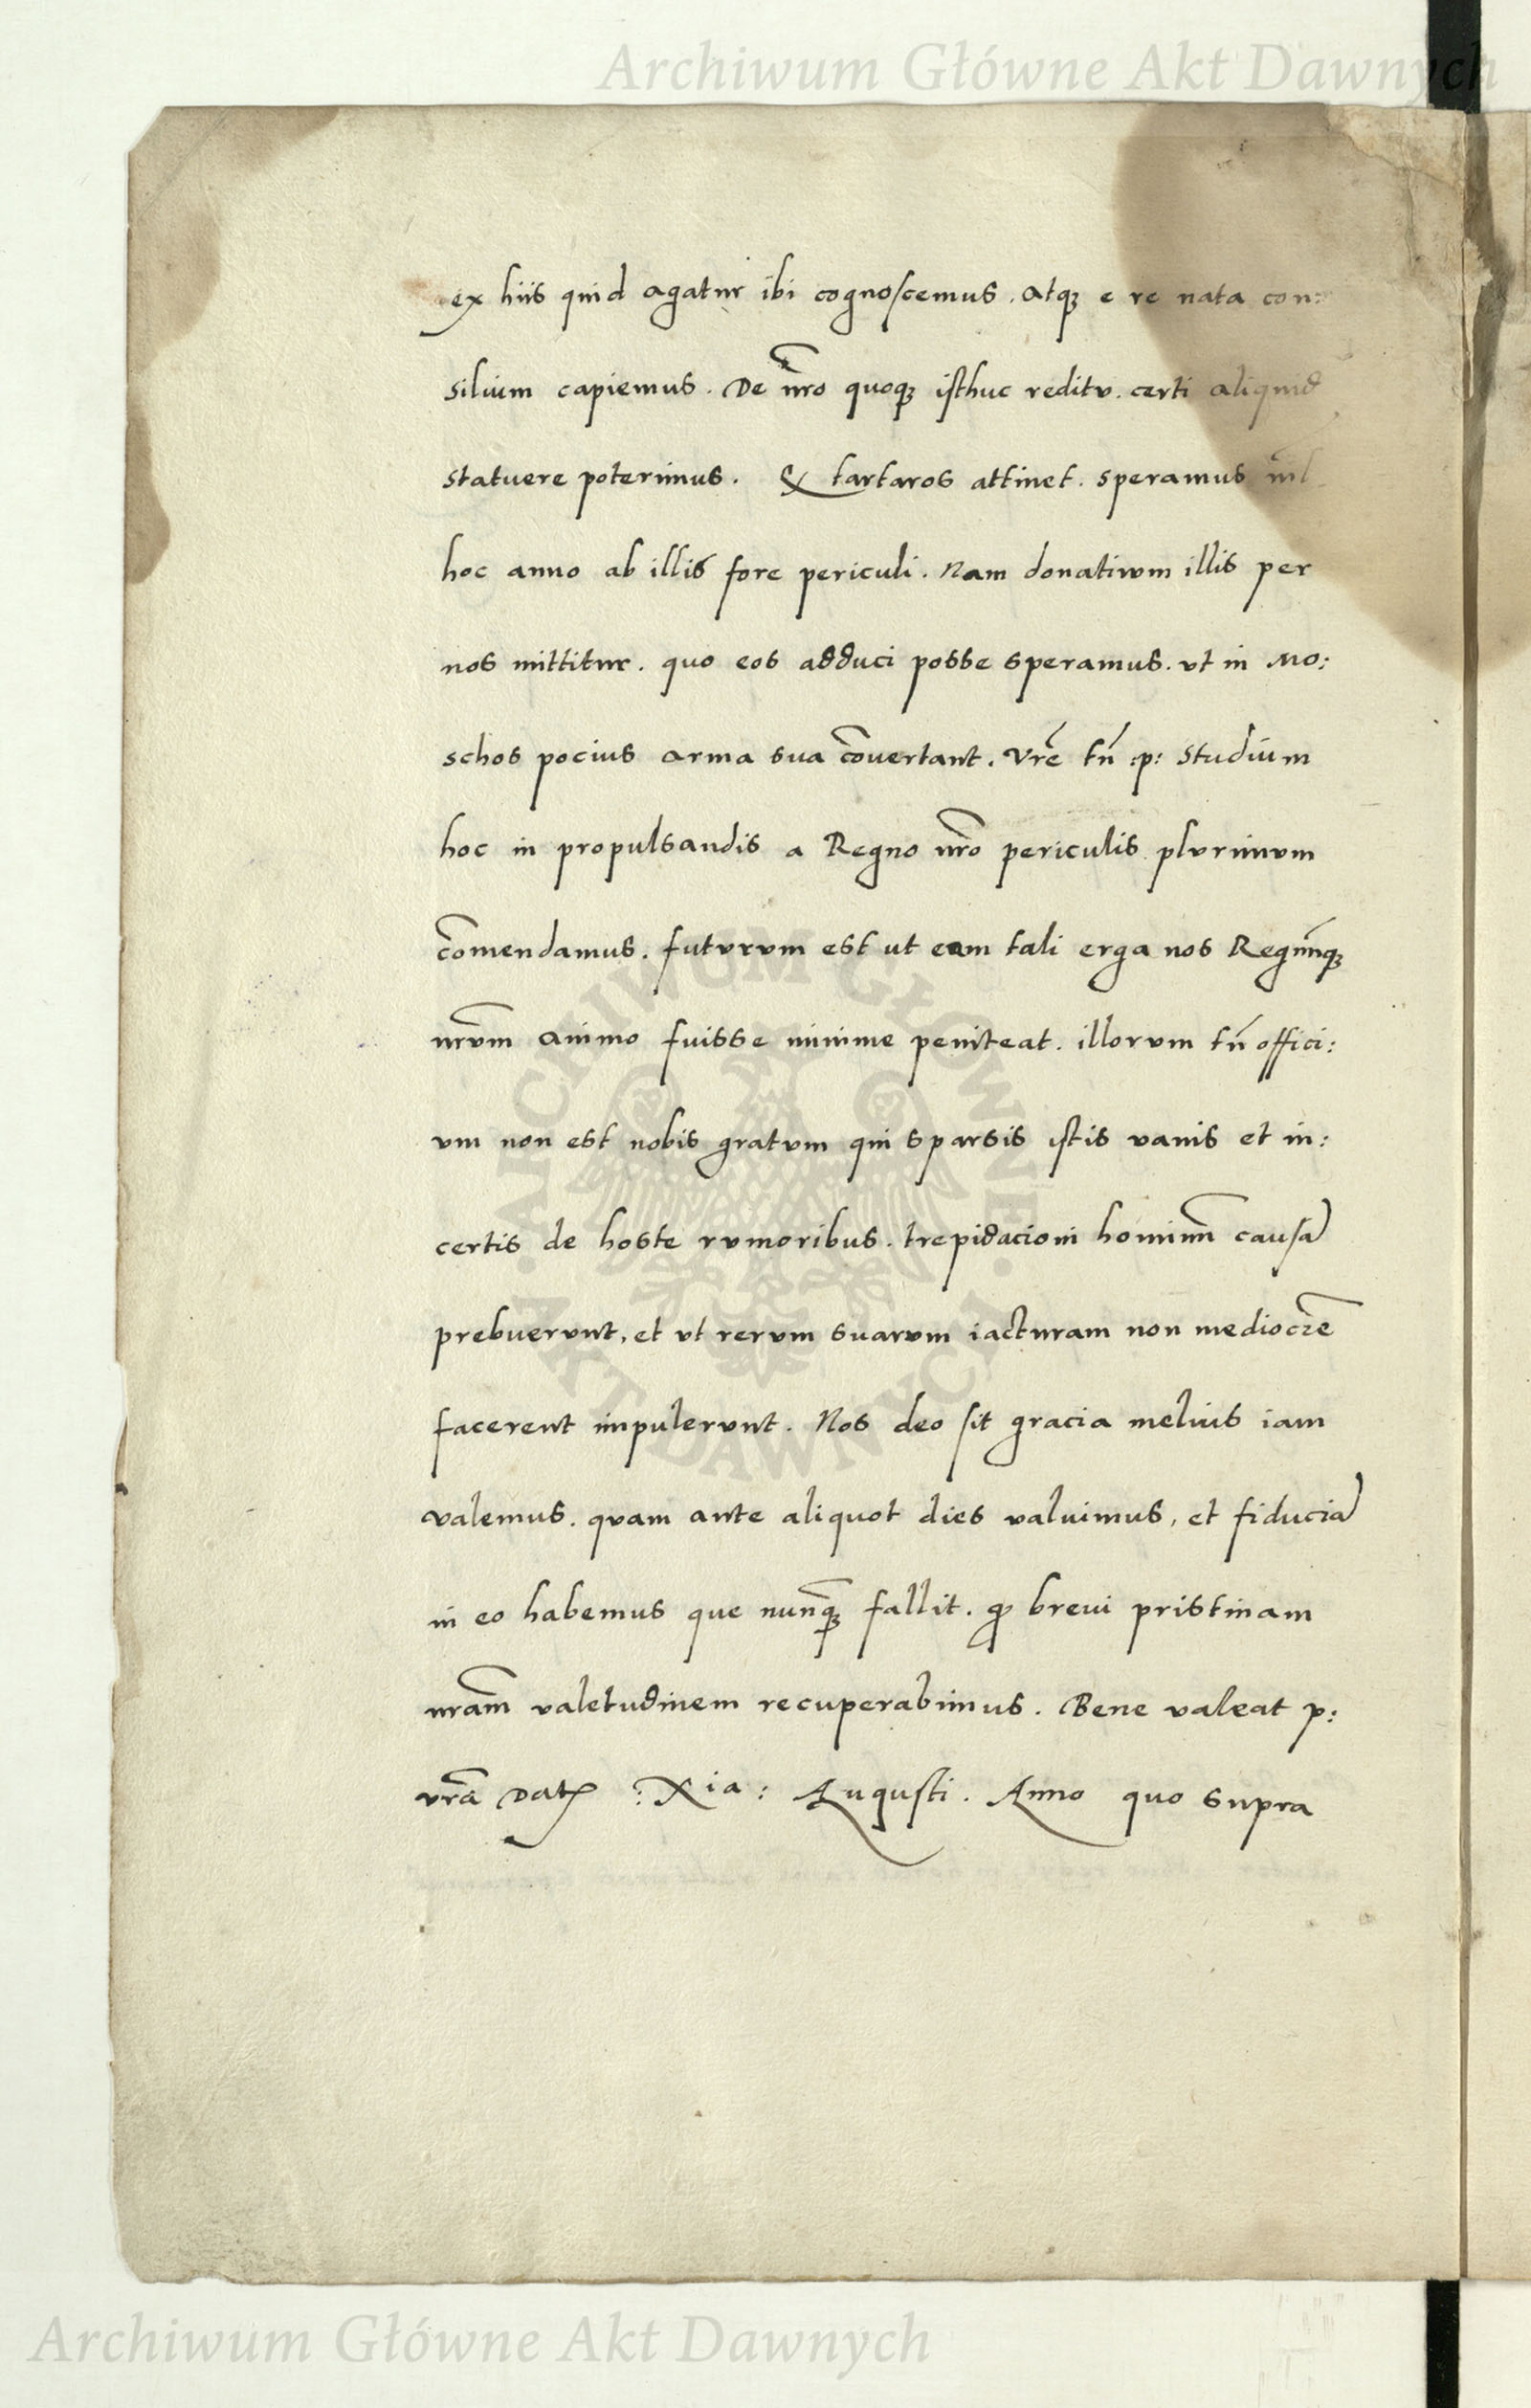 Archiwum Główne Akt Dawnych
ex hiis quid agatur ibi cognoscemus. Atq3 e re nata con:
silium capiemus. De nr̃o quoq3 isthuc reditu. certi aliquid
statuere poterimus. Q tartaros attinet. speramus nil
hoc anno ab illis fore periculi. Nam donativum illis per
nos mittitur. quo eos adduci posse speramus. ut in Mo:
schos pocius arma sua cõvertant. Vrẽ tñ :p: studium
hoc in propulsandis a Regno nrõ periculis plurimum
cõmendamus. futurum est ut eam tali erga nos Regnũq3
nrũm animo fuisse minime peniteat. illorum tñ offici:
um non est nobis gratum qui sparsis istis vanis et in:
certis de hoste rumoribus. trepidacioni hominũ causã
prebuerunt, et ut rerum suarum iacturam non mediocrẽ
facerent impulerunt. Nos deo sit gracia melius iam
valemus. quam ante aliquot dies valuimus, et fiduciã
in eo habemus que nunq̃3 fallit. ꝙ brevi pristinam
nrãm valetudinem recuperabimus. Bene valeat p:
vrã Dat :Xia: Augusti. Anno quo supra
ARCHIWUM GŁÓWNE
AKT DAWNYCH
Archiwum Główne Akt Dawnych